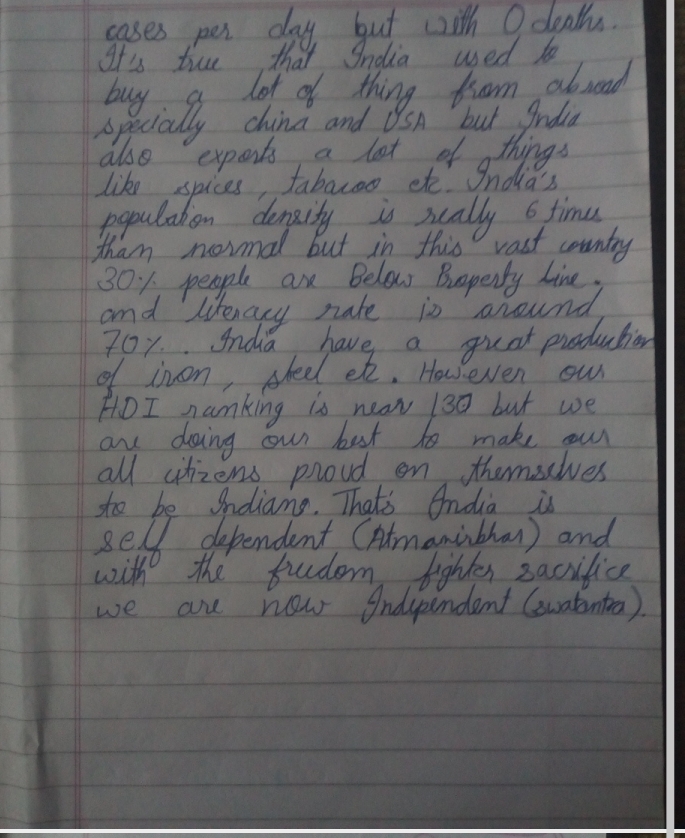 cases per day but with 0 deaths.
It's true that India used to
buy a lot of thing from abroad
specially china and USA but India
also exports a lot of things
like spices, tabacoo etc. India's
population density is really 6 times
than normal but in this vast country
30% people are Below Property line.
and literacy rate is around
70%. India have a great production
of iron, steel etc. However our
HDI ranking is near 130 but we
are doing our best to make our
all citizens proud on themselves
to be Indians. That's India is
self dependent (Atmanirbhar) and
with the freedom fighter sacrifice
we are now Independent (swatantra).